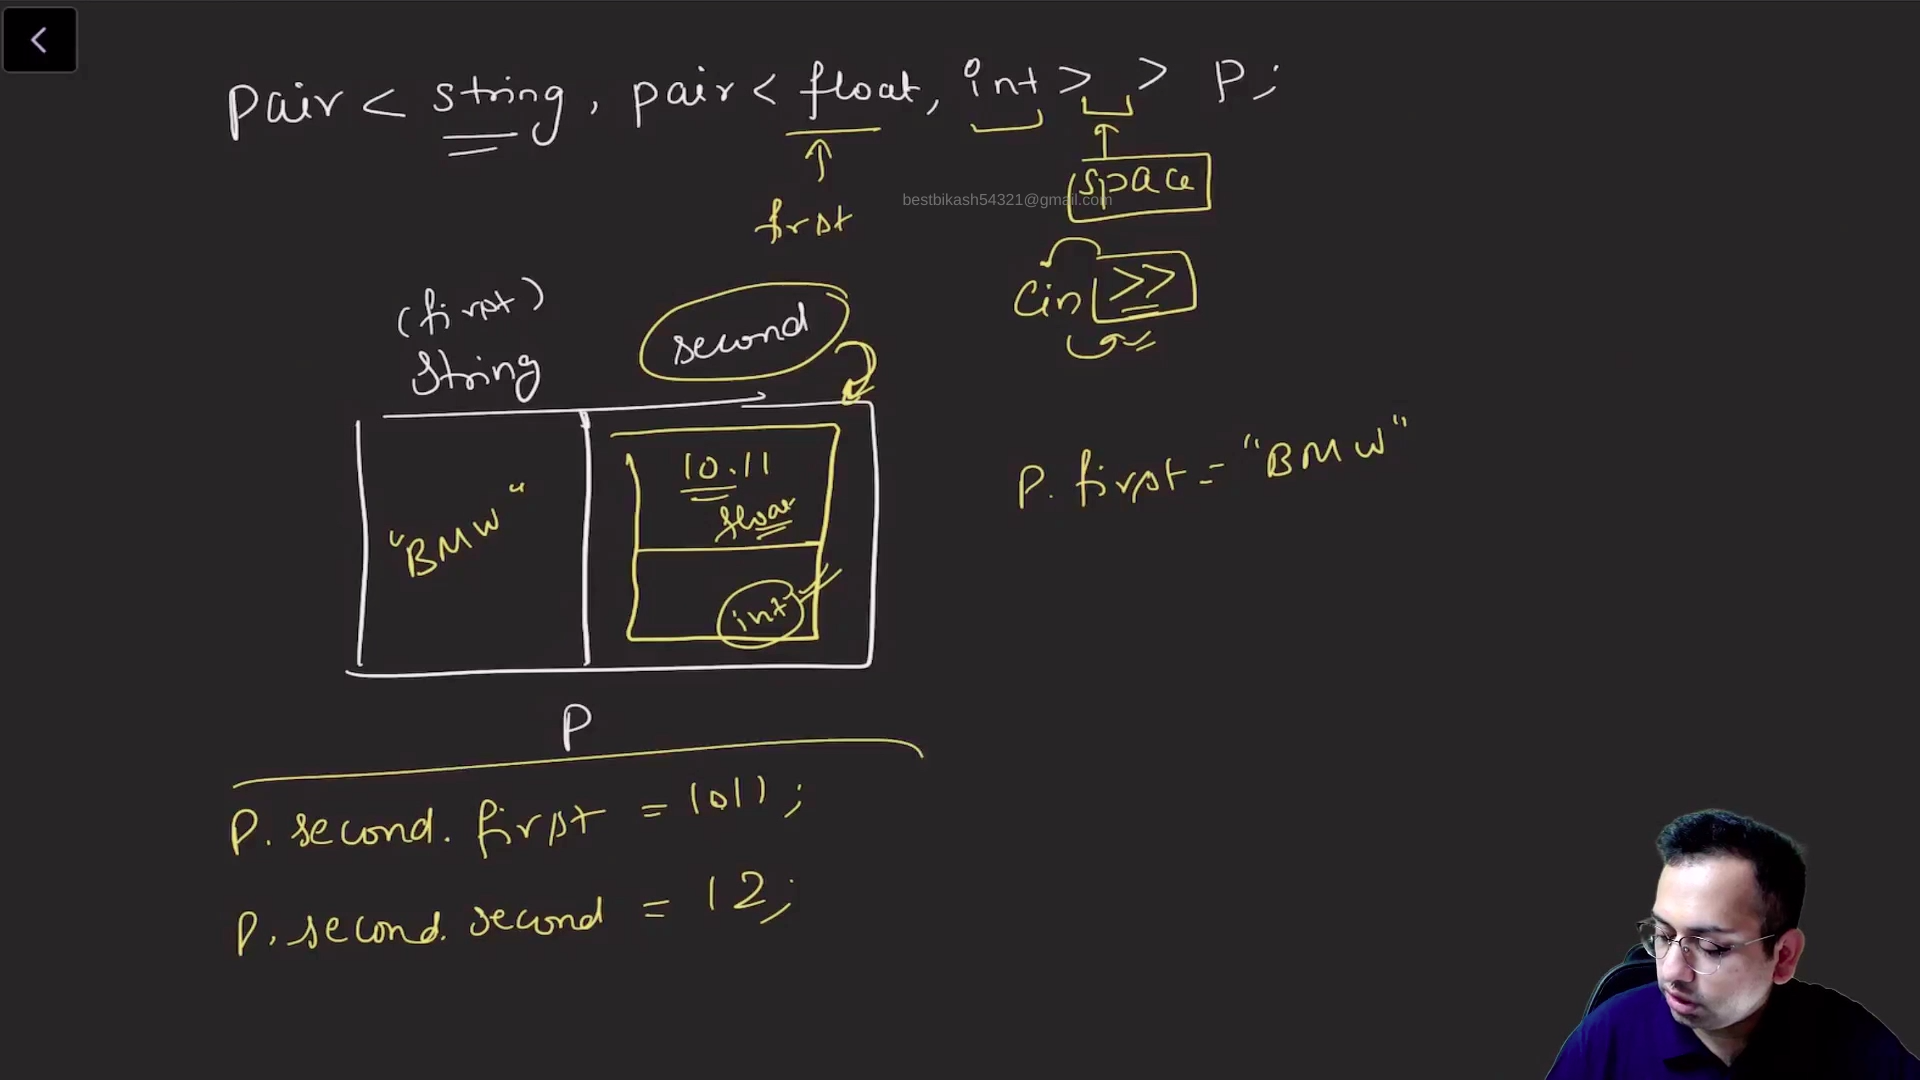 pair < string, pair < float, int > > P;
space
bestbikash54321@gmail.com
first
cin >>
(first)
string
second
"BMW"
10.11
float
int
P. first = "BMW"
P
P. second. first = 1011;
P. second. second = 12;